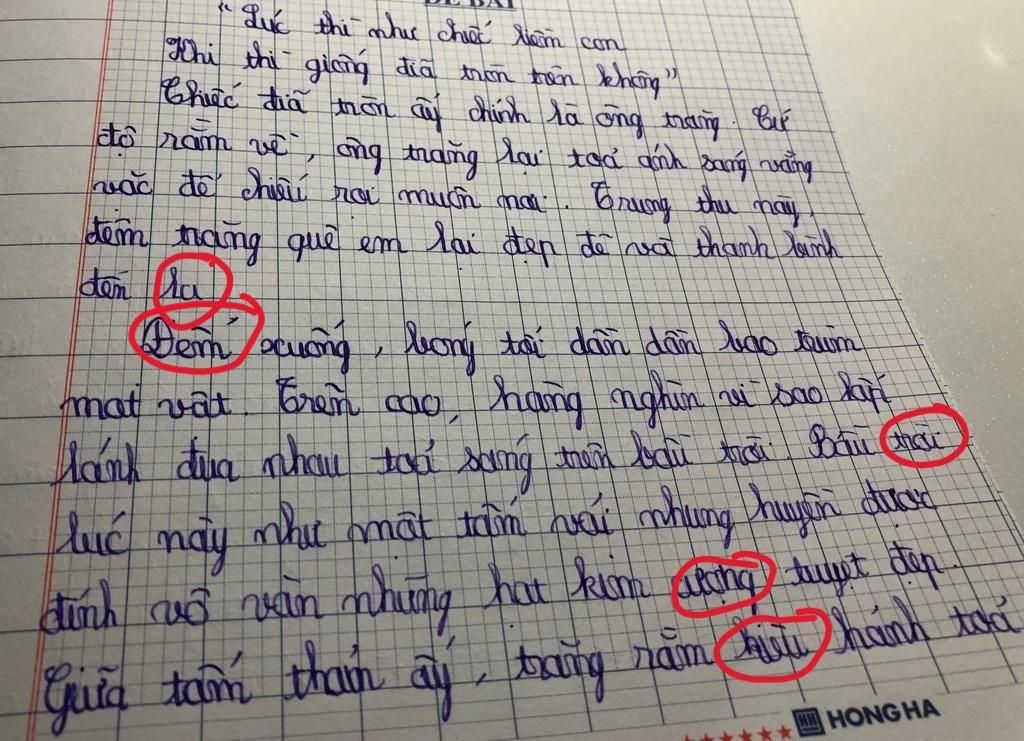 ĐỀ BÀI
"Lúc thì như chiếc liềm con
Khi thì giống đĩa tròn trên không"
Chiếc đĩa tròn ấy chính là ông trăng. Cứ
độ rằm về, ông trăng lại toả ánh sáng vàng
vắc để chiếu rọi muôn nơi. Trung thu này,
đêm trăng quê em lại đẹp đẽ và thanh lành
đến lạ
Đêm xuống, bóng tối dần dần bao trùm
mọi vật. Trên cao, hàng nghìn vì sao lấp
lánh đua nhau toả sáng trên bầu trời. Bầu trời
lúc này như một tấm vải nhung huyền được
đính vô vàn những hạt kim cương tuyệt đẹp.
Giữa tấm thảm ấy, trăng rằm khánh toả
HONG HA